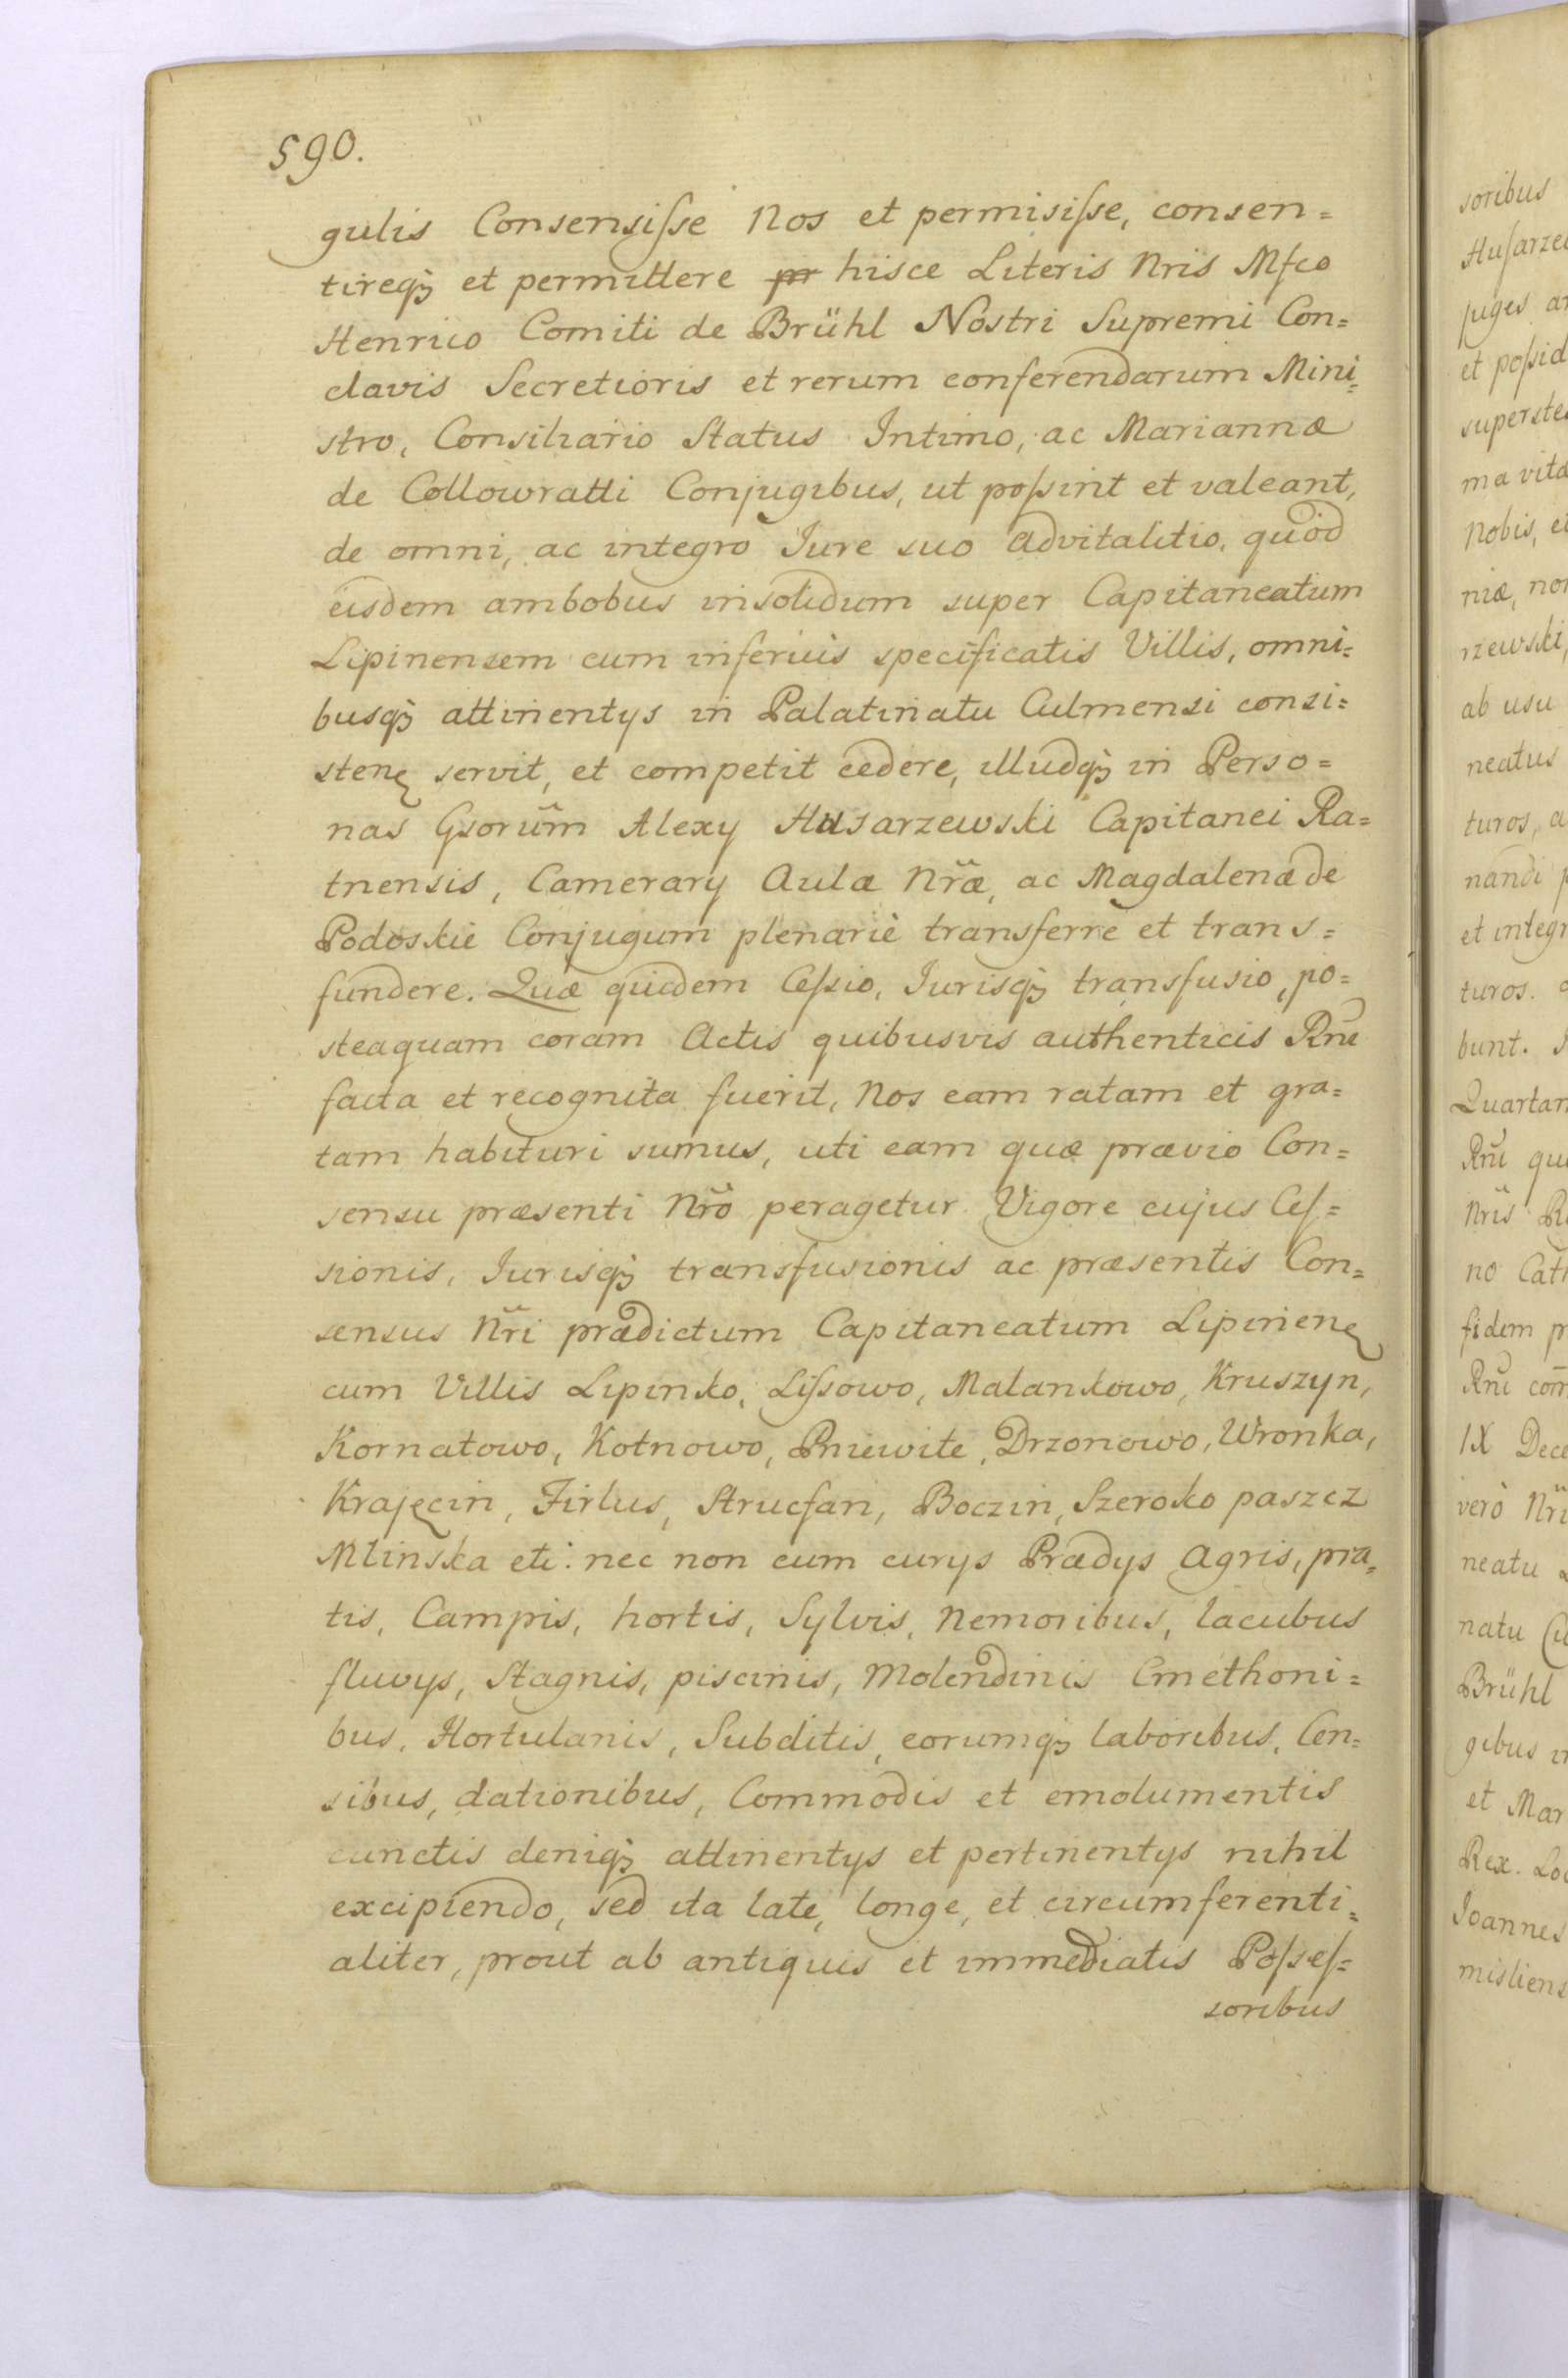 590.
gulis Consensiſse Nos et permisiſse, consen=
tireqȝ et permittere hisce Literis Nris Mfco
Henrico Comiti de Brühl Nostri Supremi Con=
clavis Secretioris et rerum conferendarum Mini=
stro, Consiliario Status Intimo, ac Mariannæ
de Collowratti Conjugibus, ut poſsint et valeant,
de omni, ac integro Jure suo advitalitio, quòd
eisdem ambobus insolidum super Capitaneatum
Lipinensem cum inferius specificatis Villis, omni=
busqȝ attinentys in Palatinatu Culmensi consi=
stenę servit, et competit cedere, illudqȝ in Perso=
nas Gsorum̃ Alexy Husarzewski Capitanei Ra=
tnensis, Camerary Aulæ Nr̃æ, ac Magdalenæ de
Podoskie Conjugum plenariè transferre et trans=
fundere. Quæ quidem Ceſsio, Jurisqȝ transfusio, po=
steaquam coram Actis quibusvis authenticis Rni
facta et recognita fuerit, Nos eam ratam et gra=
tam habituri sumus, uti eam quæ prævio Con=
sensu præsenti Nr̃o peragetur. Vigore cujus Ceſ=
sionis, Jurisqȝ transfusionis ac præsentis Con=
sensus Nr̃i prædictum Capitaneatum Lipinenę
cum Villis Lipinko, Liſsowo, Malankowo, Kruszyn,
Kornatowo, Kotnowo, Pniewite, Drzonowo, Wronka,
Krajęcin, Firlus, Strucfan, Boczin, Szeroko paszcz
Mlinska etc: nec non cum curys Prædys Agris, pra=
tis, Campis, hortis, Sylvis, Nemoribus, lacubus
fluvys, Stagnis, piscinis, Molendinis Cmethoni=
bus, Hortulanis, Subditis, eorumqȝ laboribus, Cen=
sibus, dationibus, Commodis et emolumentis
cunctis deniqȝ attinentys et pertinentys nihil
excipiendo, sed ita late, longe, et circumferenti=
aliter, prout ab antiquis et immediatis Poſseſ=
soribus
soribus
Huſarze
juges a
et poſsid
superste
ma vita
Nobis, e
niæ, no
rzewski,
ab usu
neatus
turos, a
nandi p
et integr
turos.
bunt.
Quartar
Rni qu
Nr̃is R
no Cat
fidem p
Rni com̃
IX Dece
verò Nr̃i
neatu
natu Cu
Brühl
gibus i
et Mar
Rex. Loc
Joannes
misliens